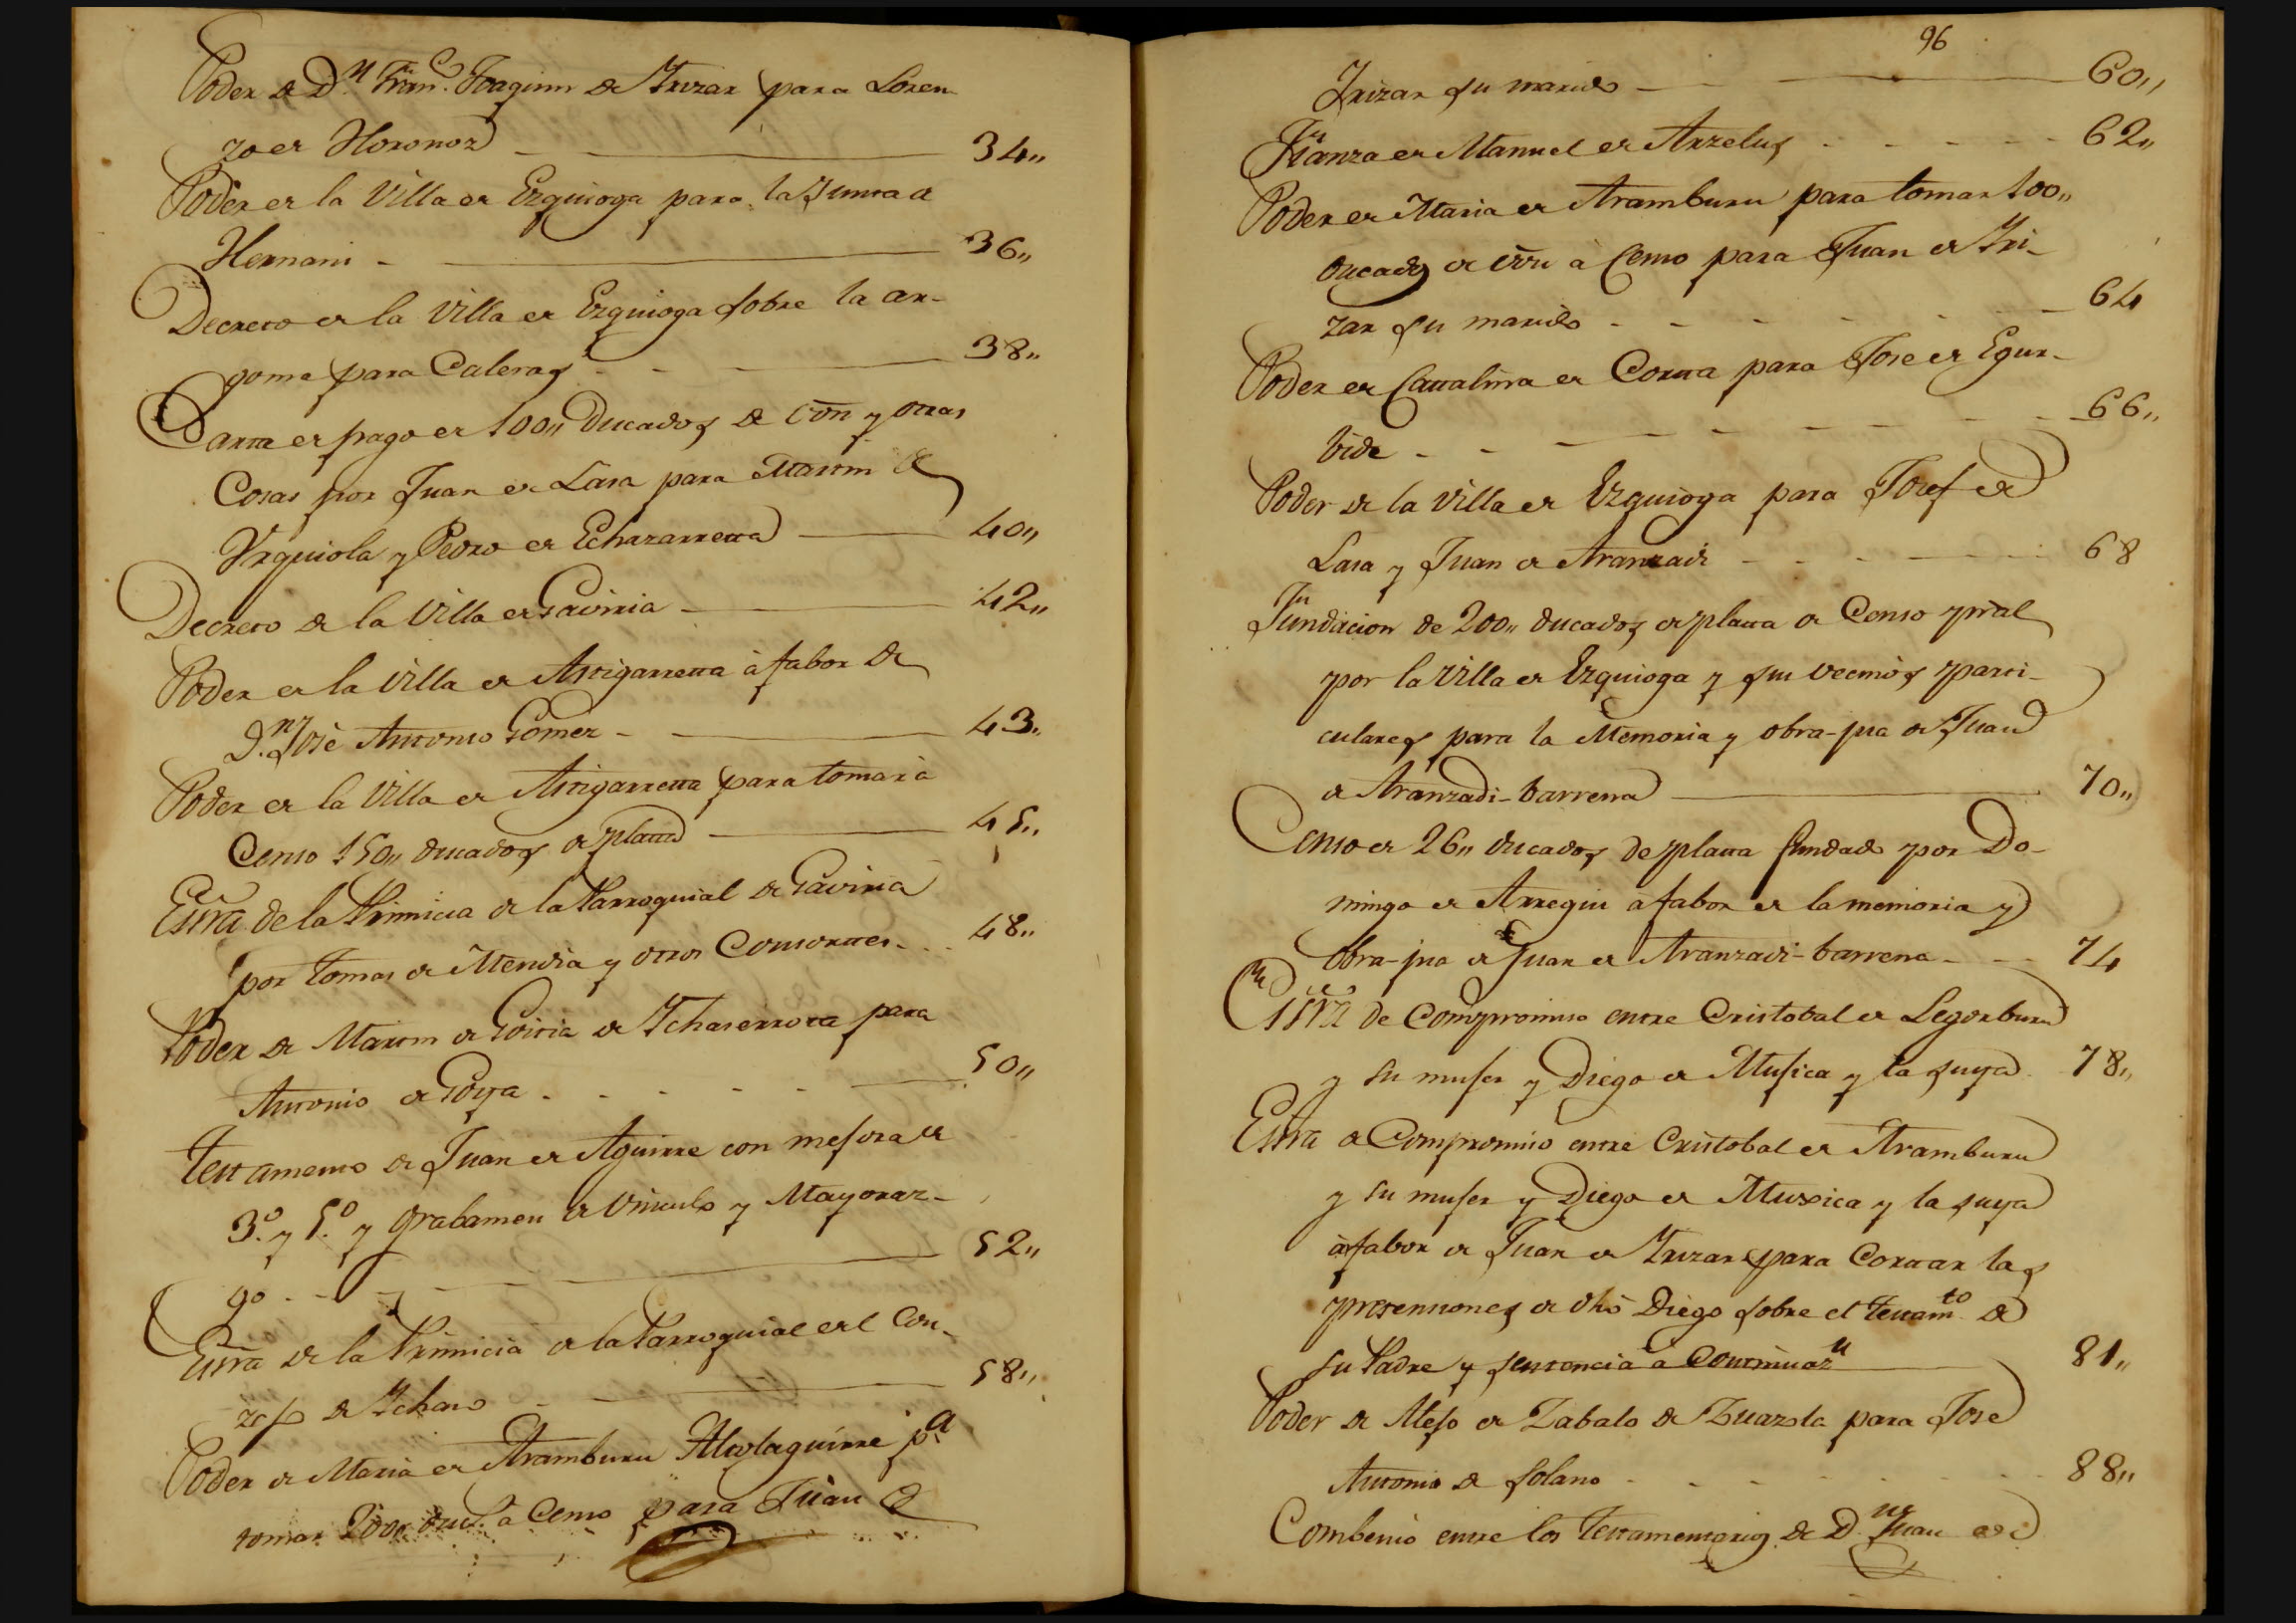 Poder de D.n Fran.co Joaquin de Yrizar para Loren
zo de Horonoz 34,,
Poder de la Villa de Ezquioga para la Junta de
Hernani - 36,,
Decreto de la Villa de Ezquioga sobre la ar-
goma para Caleras 38,,
Carta de pago de 100,, Ducados de von y otras
Cosas por Juan de Lasa para Martin de
Urquiola y Pedro de Echazarreta 40,,
Decreto de la Villa de Gaviria 42,,
Poder de la Villa de Astigarreta à fabor de
D.n José Antonio Gomez - 43,,
Poder de la Villa de Astigarreta para tomar à
Censo 150,, ducados de plata 45,,
Essra de la Primicia de la Parroquial de Gaviria
por Tomas de Mendia y otros Consortes 48,,
Poder de Martin de Goiria de Ychaserrota para
Antonio de Goya 50,,
Testamento de Juan de Aguirre con mejora de
3.o y 5.o y grabamen de Vinculo y Mayoraz-
go 52,,
Essra de la Primicia de la Parroquial del Con-
zejo de Ychaso 58,,
Poder de Maria de Aramburu Alcolaguirre p.a
tomar 200,, duc.s à Censo para Juan de
96
Yrizar su marido 60,,
Fianza de Manuel de Arzelus 62,,
Poder de Maria de Aramburu para tomar 100,,
ducados de von à Censo para Juan de Yri-
zar su marido 64
Poder de Catalina de Corta para Jose de Egur-
bide 66,,
Poder de la Villa de Ezquioga para Josef de
Lasa y Juan de Aranzadi 68
Fundicion de 200,, ducados de plata de Censo pral
por la Villa de Ezquioga y sus vecinos parti-
culares para la Memoria y obra-pia de Juan
de Aranzadi-barrena 70,,
Censo de 26,, ducados de plata fundado por Do-
mingo de Arregui à fabor de la memoria y
obra-pia de Juan de Aranzadi-barrena 74
Essra de Compromiso entre Cristobal de Legorburu
y su muger y Diego de Mugica y la suya 78,,
Essra de Compromiso entre Cristobal de Aramburu
y su muger y Diego de Muxica y la suya
à fabor de Juan de Yrizar para Cortar las
pretensiones de dho Diego sobre el testam.to de
su Padre y sentencia à Continuaz.n 81,,
Poder de Alejo de Zabalo de Zuazola para Jose
Antonio de Solano 88,,
Combenio entre los Testamentarios de D.n Juan de